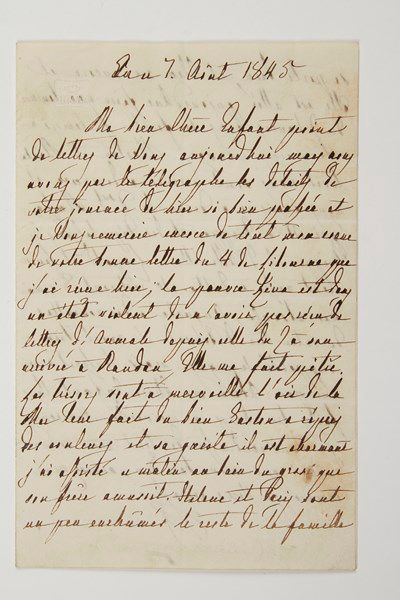 Eu 7. Août 1845
Ma bien Chère Enfant point
de lettres de Vous aujourd'hui mais nous
avons par le télégraphe les détails de
votre journée de hier si bien passée et
je Vous remercie encore de tout mon cœur
de votre bonne lettre du 4 de Libourne que
j'ai reçue hier; la pauvre est dans
un état violent de n'avoir pas reçu de
lettres d'Aumale depuis celle du 2 à son
arrivée à Randan. Elle me fait pitié.
Les trésors sont à merveille l'air de la
Mer leur fait du bien Gaston a repris
des couleurs et sa gaieté il est charmant
j'ai assisté ce matin au bain du gros que
son frère amusait. Helene et Paris sont
un peu enrhumés le reste de la famille